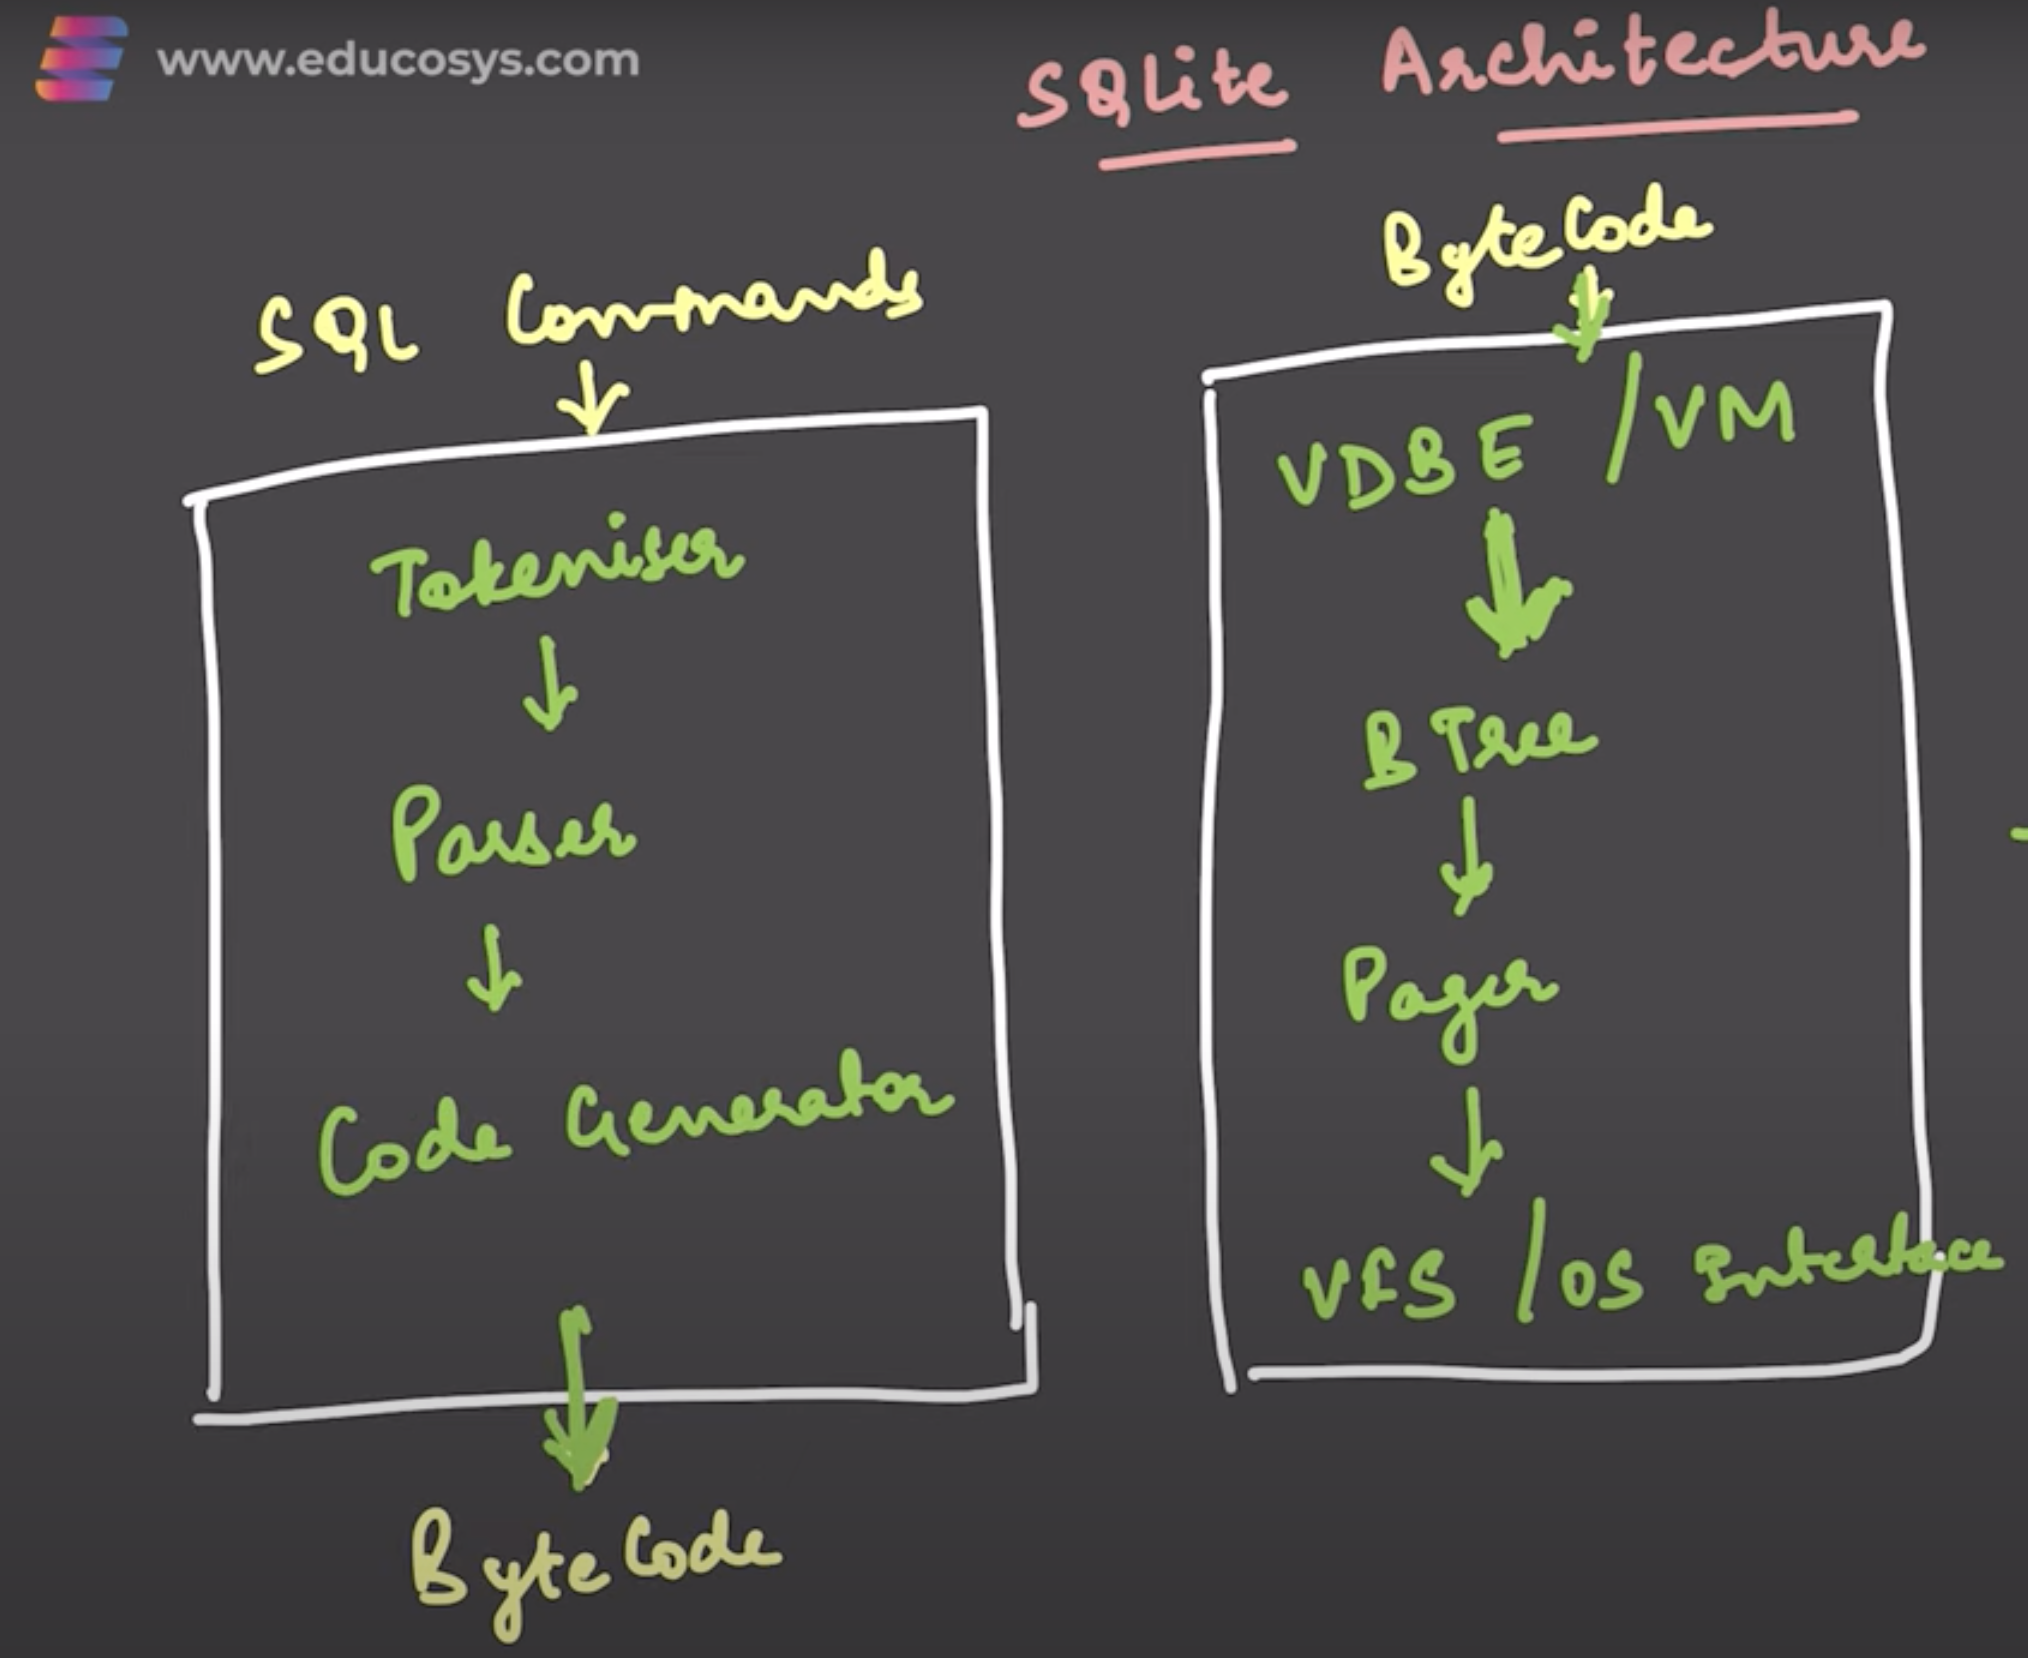 www.educosys.com
SQLite Architecture
SQL Commands
Tokeniser
Parser
Code Generator
ByteCode
ByteCode
VDBE / VM
B Tree
Pager
VFS / OS Interface